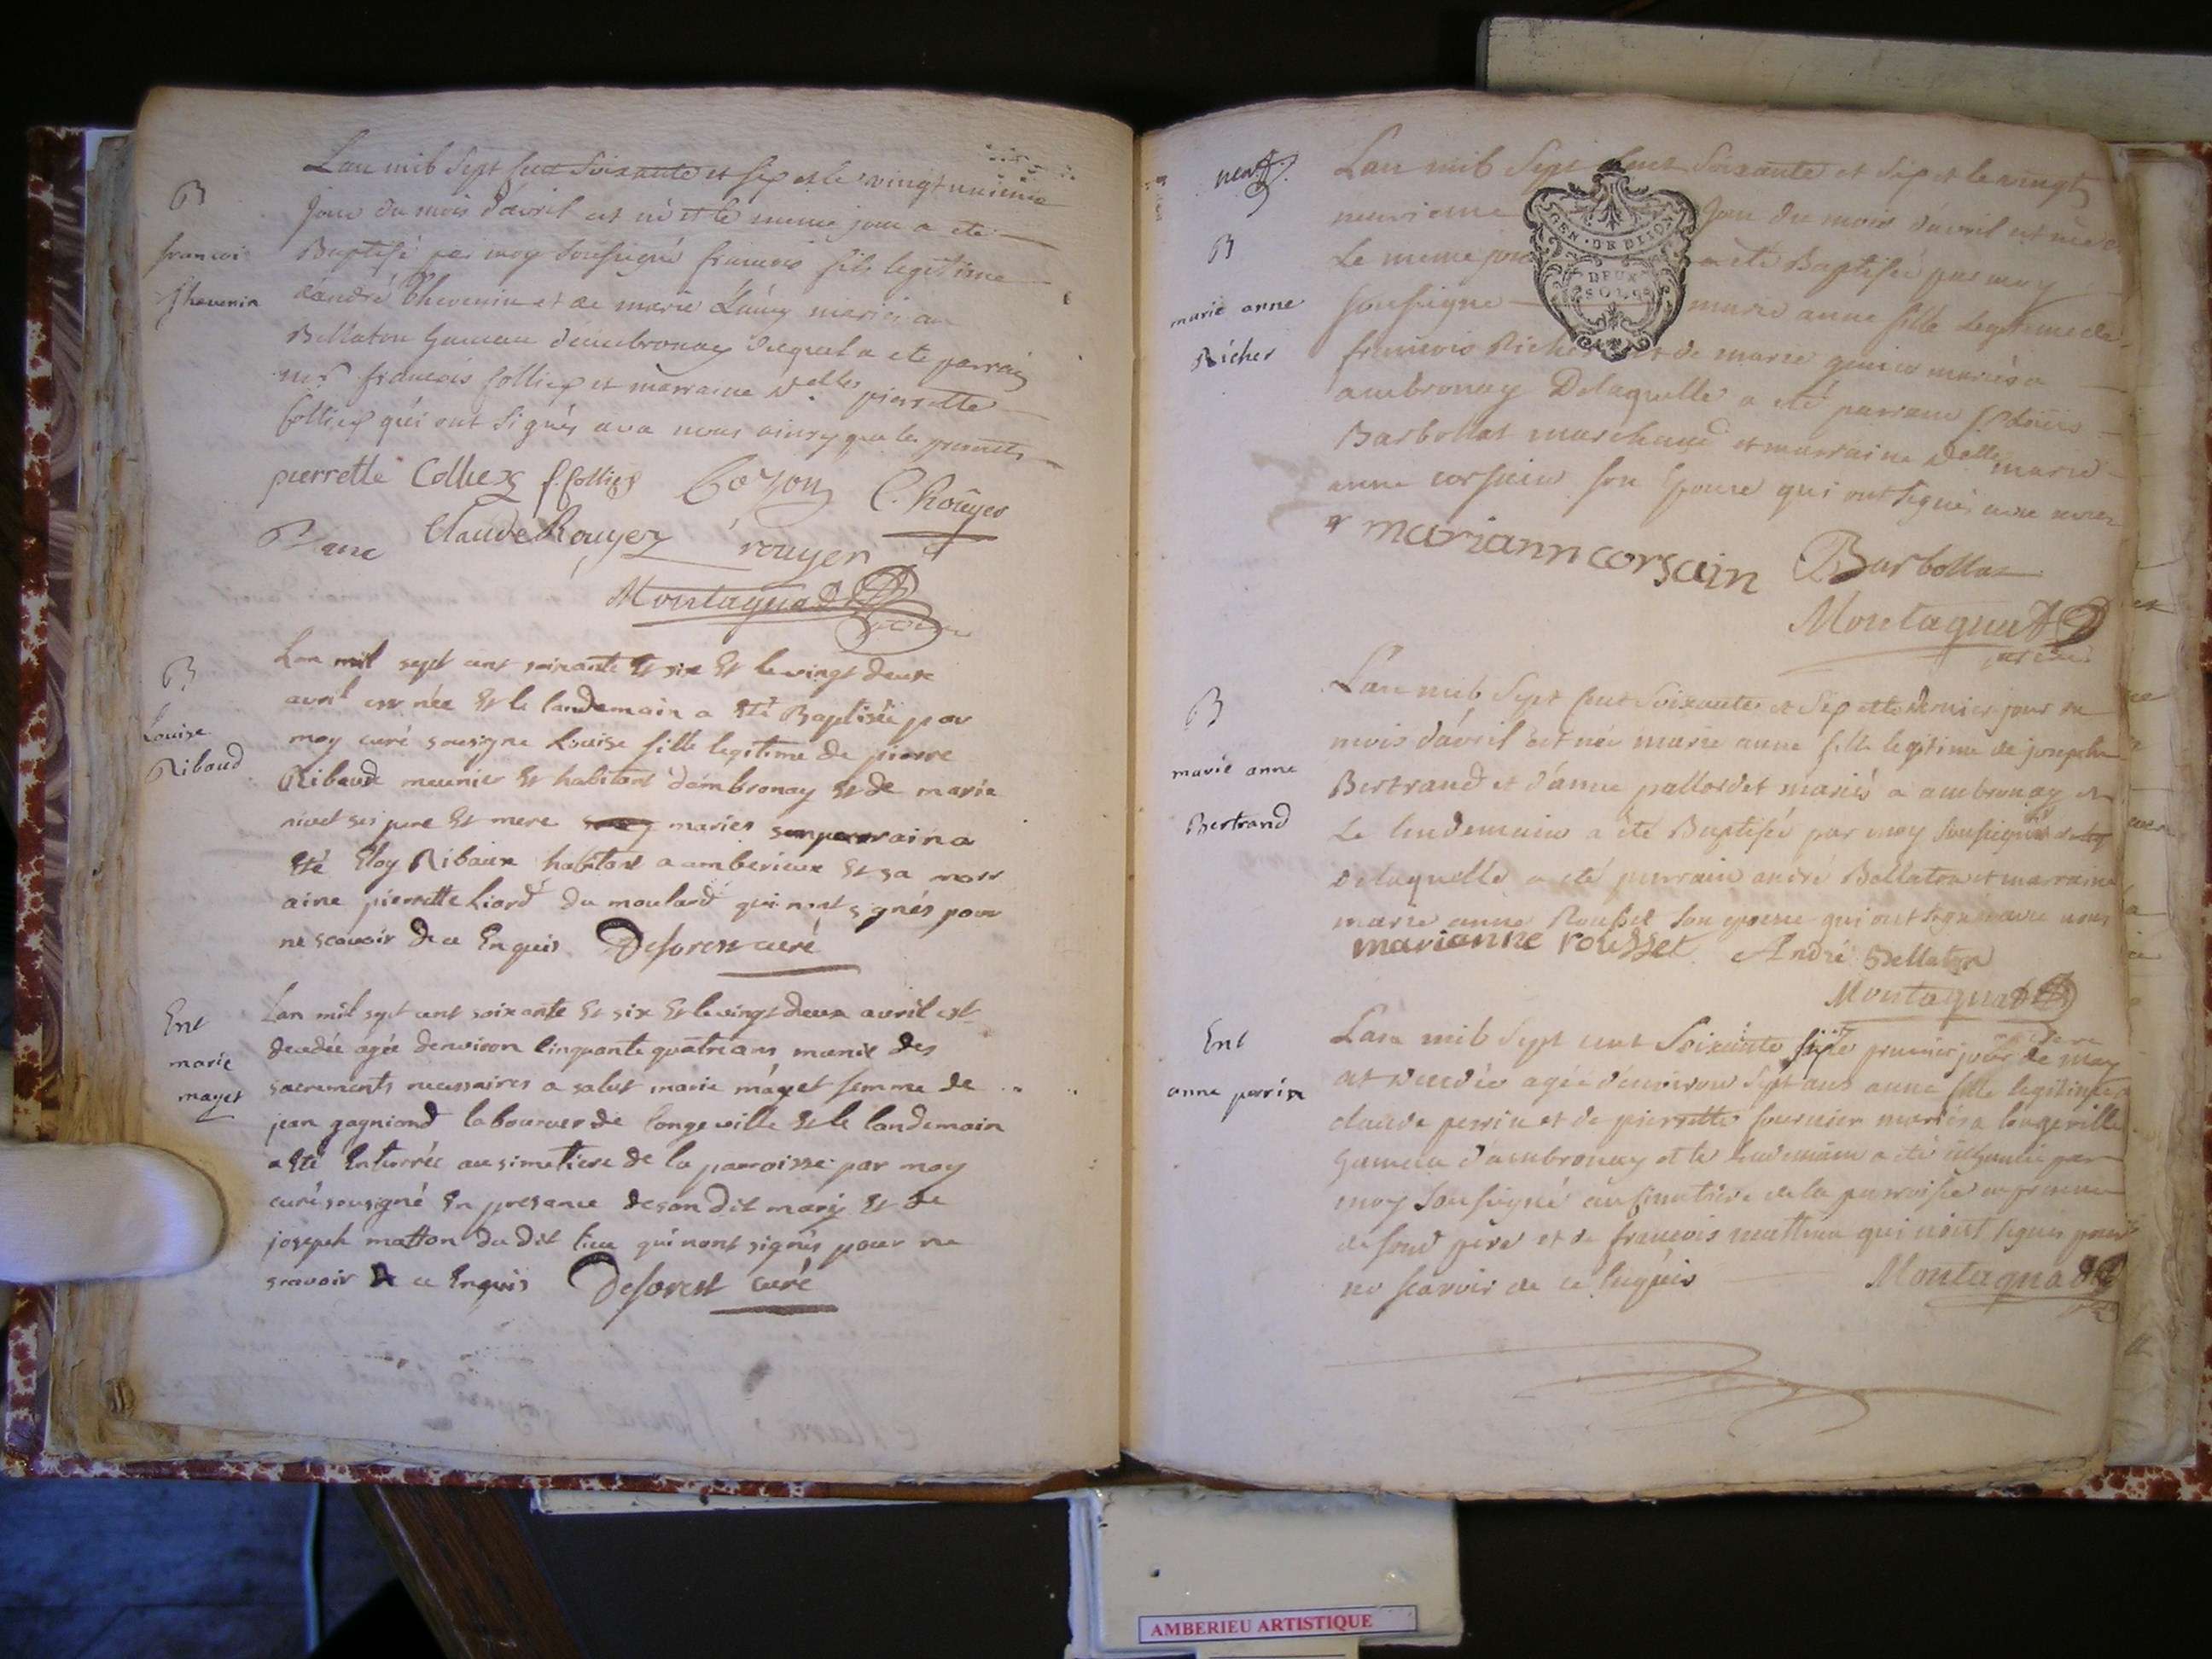 B
francoi
thevenin
Lan mil sept cent soixante et sept et le vingt unieme
jour du mois d'avril est né et le meme jour a eté
Baptisé par moy soussigné francois fils legitime
d'andré thevenin et de marie mariés au
Bellaton hameau d'ambronay duquel a eté parrain
mr francois Colliex et marraine delle pierrette
Colliex qui ont signés avec nous ainsy que les presents
pierrette Colliex f. Colliex Bozon C. Roüyer
Claude Rouyer rouyer
Montagnat
B
Louise
Ribaud
Lan mil sept cent soixante Et six Et le vingt deux
avril est née Et le landemain a Eté Baptisée par
moy curé sousigne Louise fille legitime de pierre
Ribaud meunier Et habitant d'ambronay Et de marie
nivet ses pere Et mere mariés son parrain a
Eté Eloy Ribaux habitant a amberieux Et sa marr
aine pierrette Liard du moulard qui nont signés pour
ne scavoir de ce Enquis Deforest curé
Ent
marie
mayet
Lan mil sept cent soixante Et six Et le vingt deux avril est
decedée agée denviron cinquante quatre ans munie des
sacrements necessaires a salut marie mayet femme de
jean gagniond laboureur de longeville Et le landemain
a Eté Enterrée au simetiere de la parroisse par moy
curé sousigné En presence de son dit mary Et de
joseph matton du dit lieu qui nont signés pour ne
scavoir de ce Enquis Deforest curé
neuf
B
marie anne
Richer
Lan mil sept cent soixante et sept et le vingt
neuvieme jour du mois davril est née
Le meme jour a eté Baptisée par moy
soussigné marie anne fille legitime de
francois Richer et de marie mariés a
ambronay Delaquelle a eté parrain sr
Barbollat marchand et marraine delle marie
anne corsain son epouse qui ont signés avec nous
GEN. DE DIJON
DEUX
SOLS
mariann corsain Barbollat
Montagnat
B
marie anne
Bertrand
Lan mil sept cent soixante et sept et le dernier jour du
mois d'avril est née marie anne fille legitime de joseph
Bertrand et d'anne pallordet mariés a ambronay et
Le lendemain a été Baptisée par moy soussigné
delaquelle a eté parrain andré Bellaton et marraine
marie anne Rousset son epouse qui ont signés avec nous
marianne rousset André Bellaton
Montagnat
Ent
anne perrin
Lan mil sept cent soixante sept premier jour de may
est decedée agée d'environ sept ans anne fille legitime de
claude perrin et de pierrette fournier mariés a longeville
hameau d'ambronay et le lendemain a été inhumée par
moy soussigné au simetiere de la parroisse en presence
de sond pere et de francois matton qui n'ont signés pour
ne scavoir de ce enquis Montagnat
AMBERIEU ARTISTIQUE